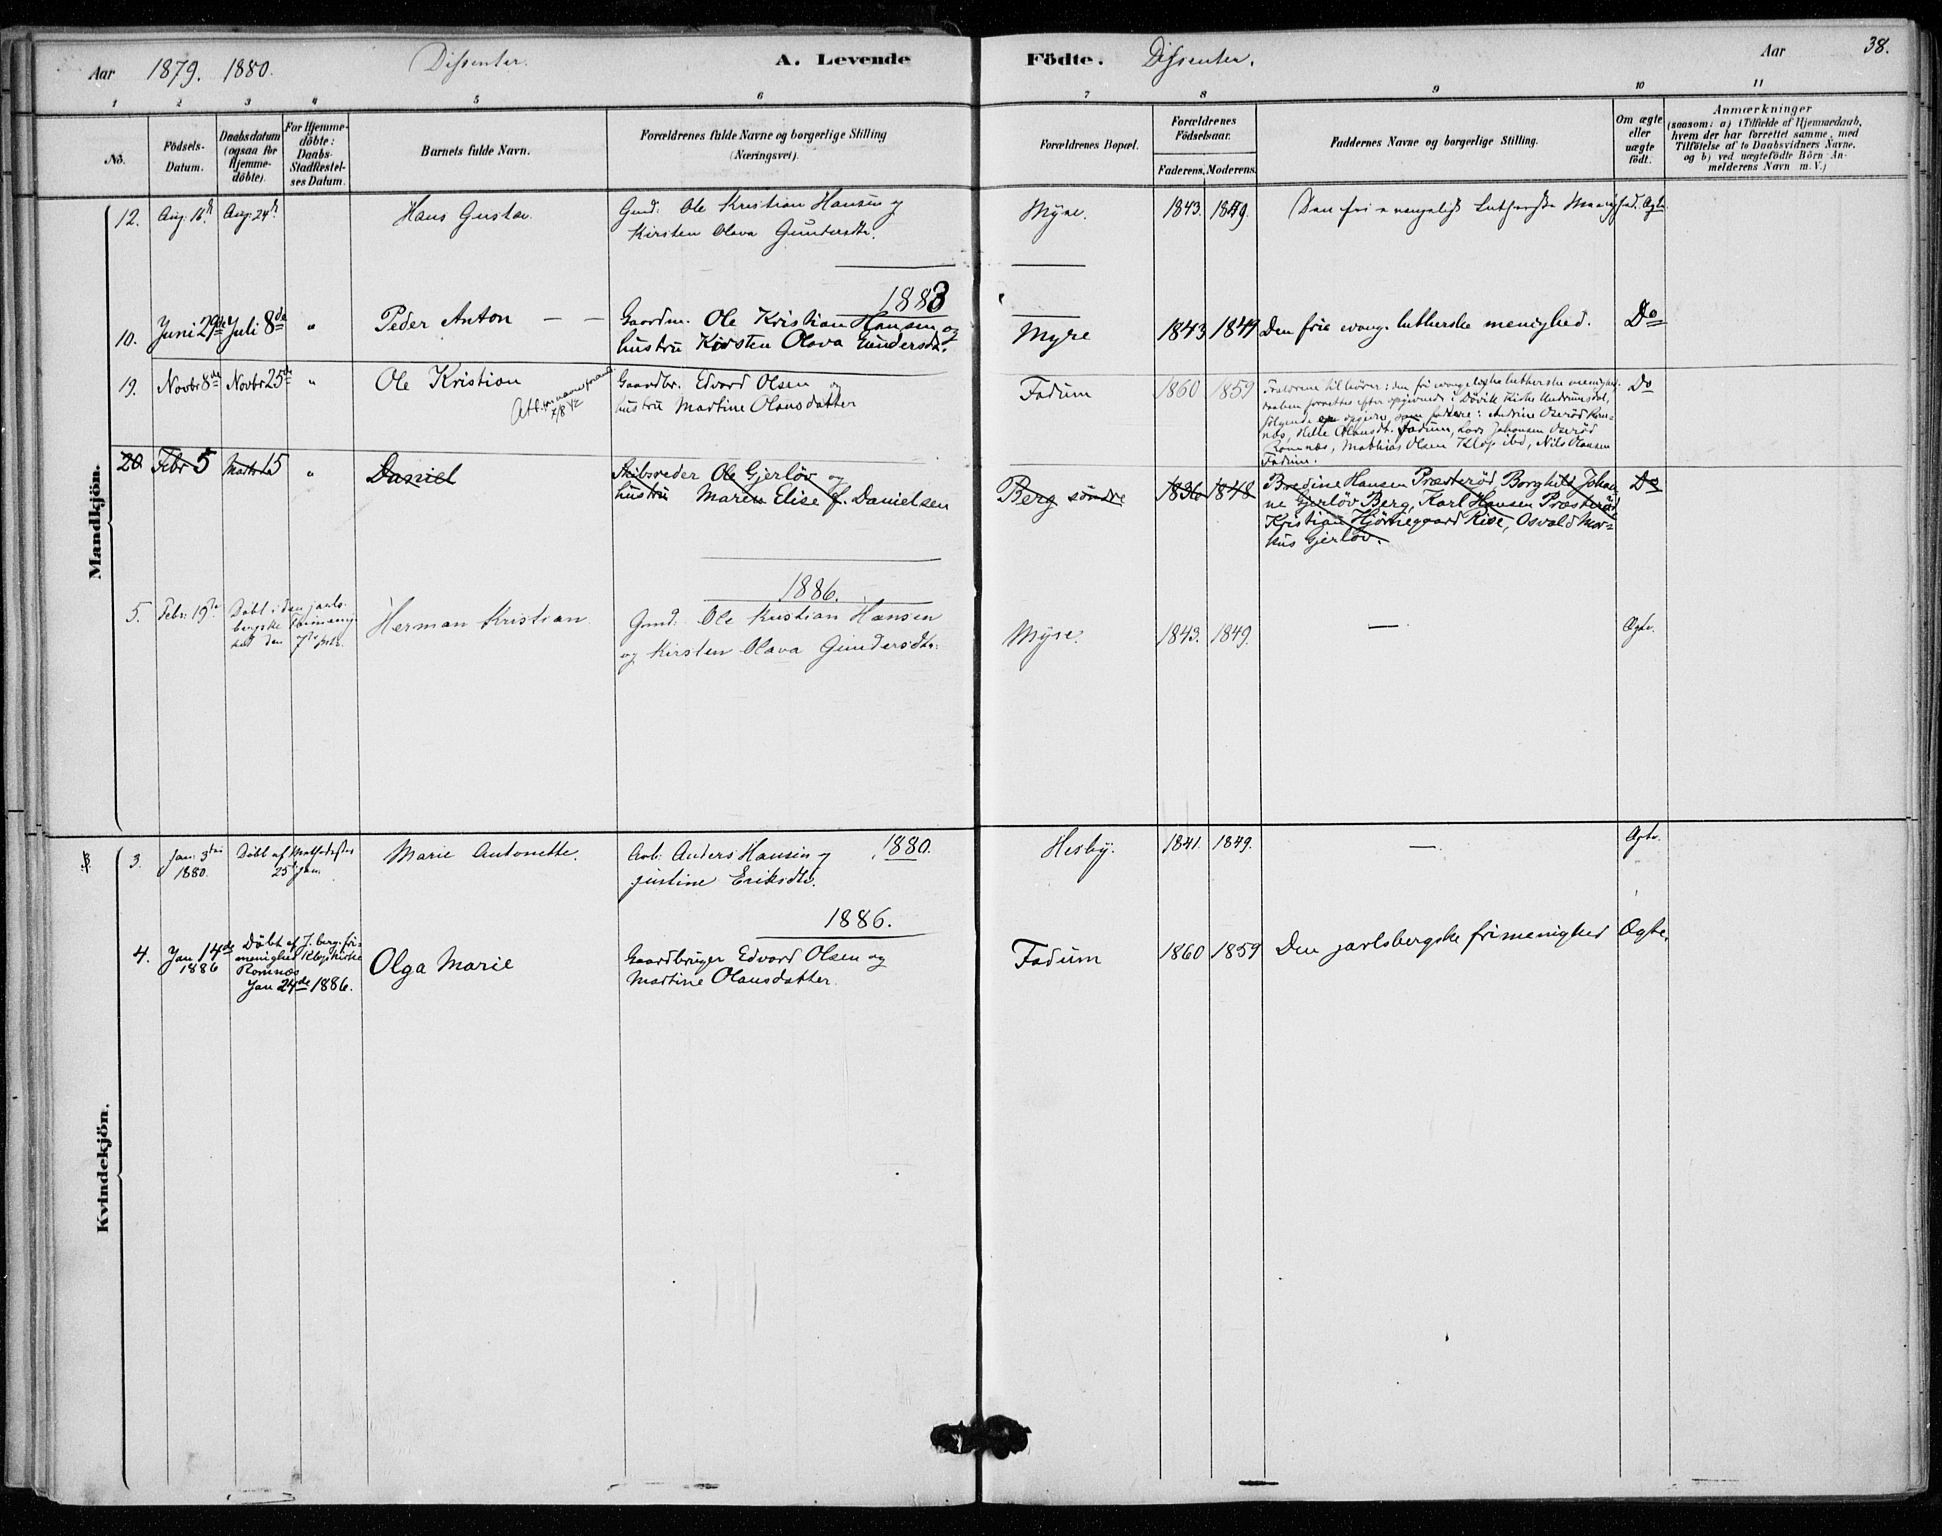 Aar 1879. 1880. Dissenter. A. Levende Födte. Dissenter. Aar 38.
1 2 3 4 5 6 7 8 9 10 11
No.
Födsels-
Datum.
Daabsdatum
(ogsaa for
Hjemme-
döbte).
For Hjemme-
döbte:
Daabs-
Stadfæstel-
ses Datum.
Barnets fulde Navn.
Forældrenes fulde Navne og borgerlige Stilling
(Næringsvei).
Forældrenes Bopæl.
Forældrenes
Födselsaar.
Faderens. Moderens.
Faddernes Navne og borgerlige Stilling.
Om ægte
eller
uægte
födt.
Anmærkninger
(saasom: a) i Tilfælde af Hjemmedaab,
hvem der har forrettet samme, med
Tilföielse af to Daabsvidners Navne,
og b) ved uægtefödte Börn An-
melderens Navn m. V.)
Mandkjön.
12. Aug: 16de Aug: 24de Hans Gustav. Gmd: Ole Kristian Hansen og
Kirsten Olava Gundersdtr. Myre. 1843. 1849. Den fri evangelisk Lutherske Menighed. Ægte
1883
10. Juni 29de Juli 8de " Peder Anton — — Gaardm. Ole Kristian Hansen og
hustru Kirsten Olava Gundersdt. Myre 1843 1849 Den frie evang. lutherske menighed. Do
19. Novbr 8de Novbr 25de " Ole Kristian
Att.
Gaardbr. Edvard Olsen og
hustru Martine Olausdatter Fadum 1860 1859
Forældrene tilhører: den fri evangeliske lutherske menighed.
Do
20 Febr 5 Marts 15 " Daniel Skibsreder Ole Gjerløv og
hustru Maren Elise f. Danielsen Berg søndre 1836 1848
Bredine Hansen Præsterød Borghild Johan-
ne Gjerløv Berg, Karl Hansen Præsterød,
Kristian Hjörnegaard Rise, Osvald Mar-
kus Gjerløv. Do
1886.
5. Febr: 19de Døbt i den jarls-
bergske frimenig-
hed den Herman Kristian. Gmd: Ole Kristian Hansen
og Kirsten Olava Gundersdtr: Myre. 1843. 1849. — Ægte.
Kvindekjön.
3. Jan: 3die
1880. Døbt af Methodister
25 Jan. Marie Antonette. Arb: Anders Hansen og 1880.
Justine Eriksdtr. Hesby. 1841. 1849. — Ægte.
1886.
4. Jan 14de
1886 Døbt af J. berg. fri-
menighed Klop Kirke
Ramnæs
Jan 24de 1886. Olga Marie Gaardbruger Edvard Olsen og
Martine Olausdatter. Fadum 1860 1859 Den jarlsbergske frimenighed Ægte.